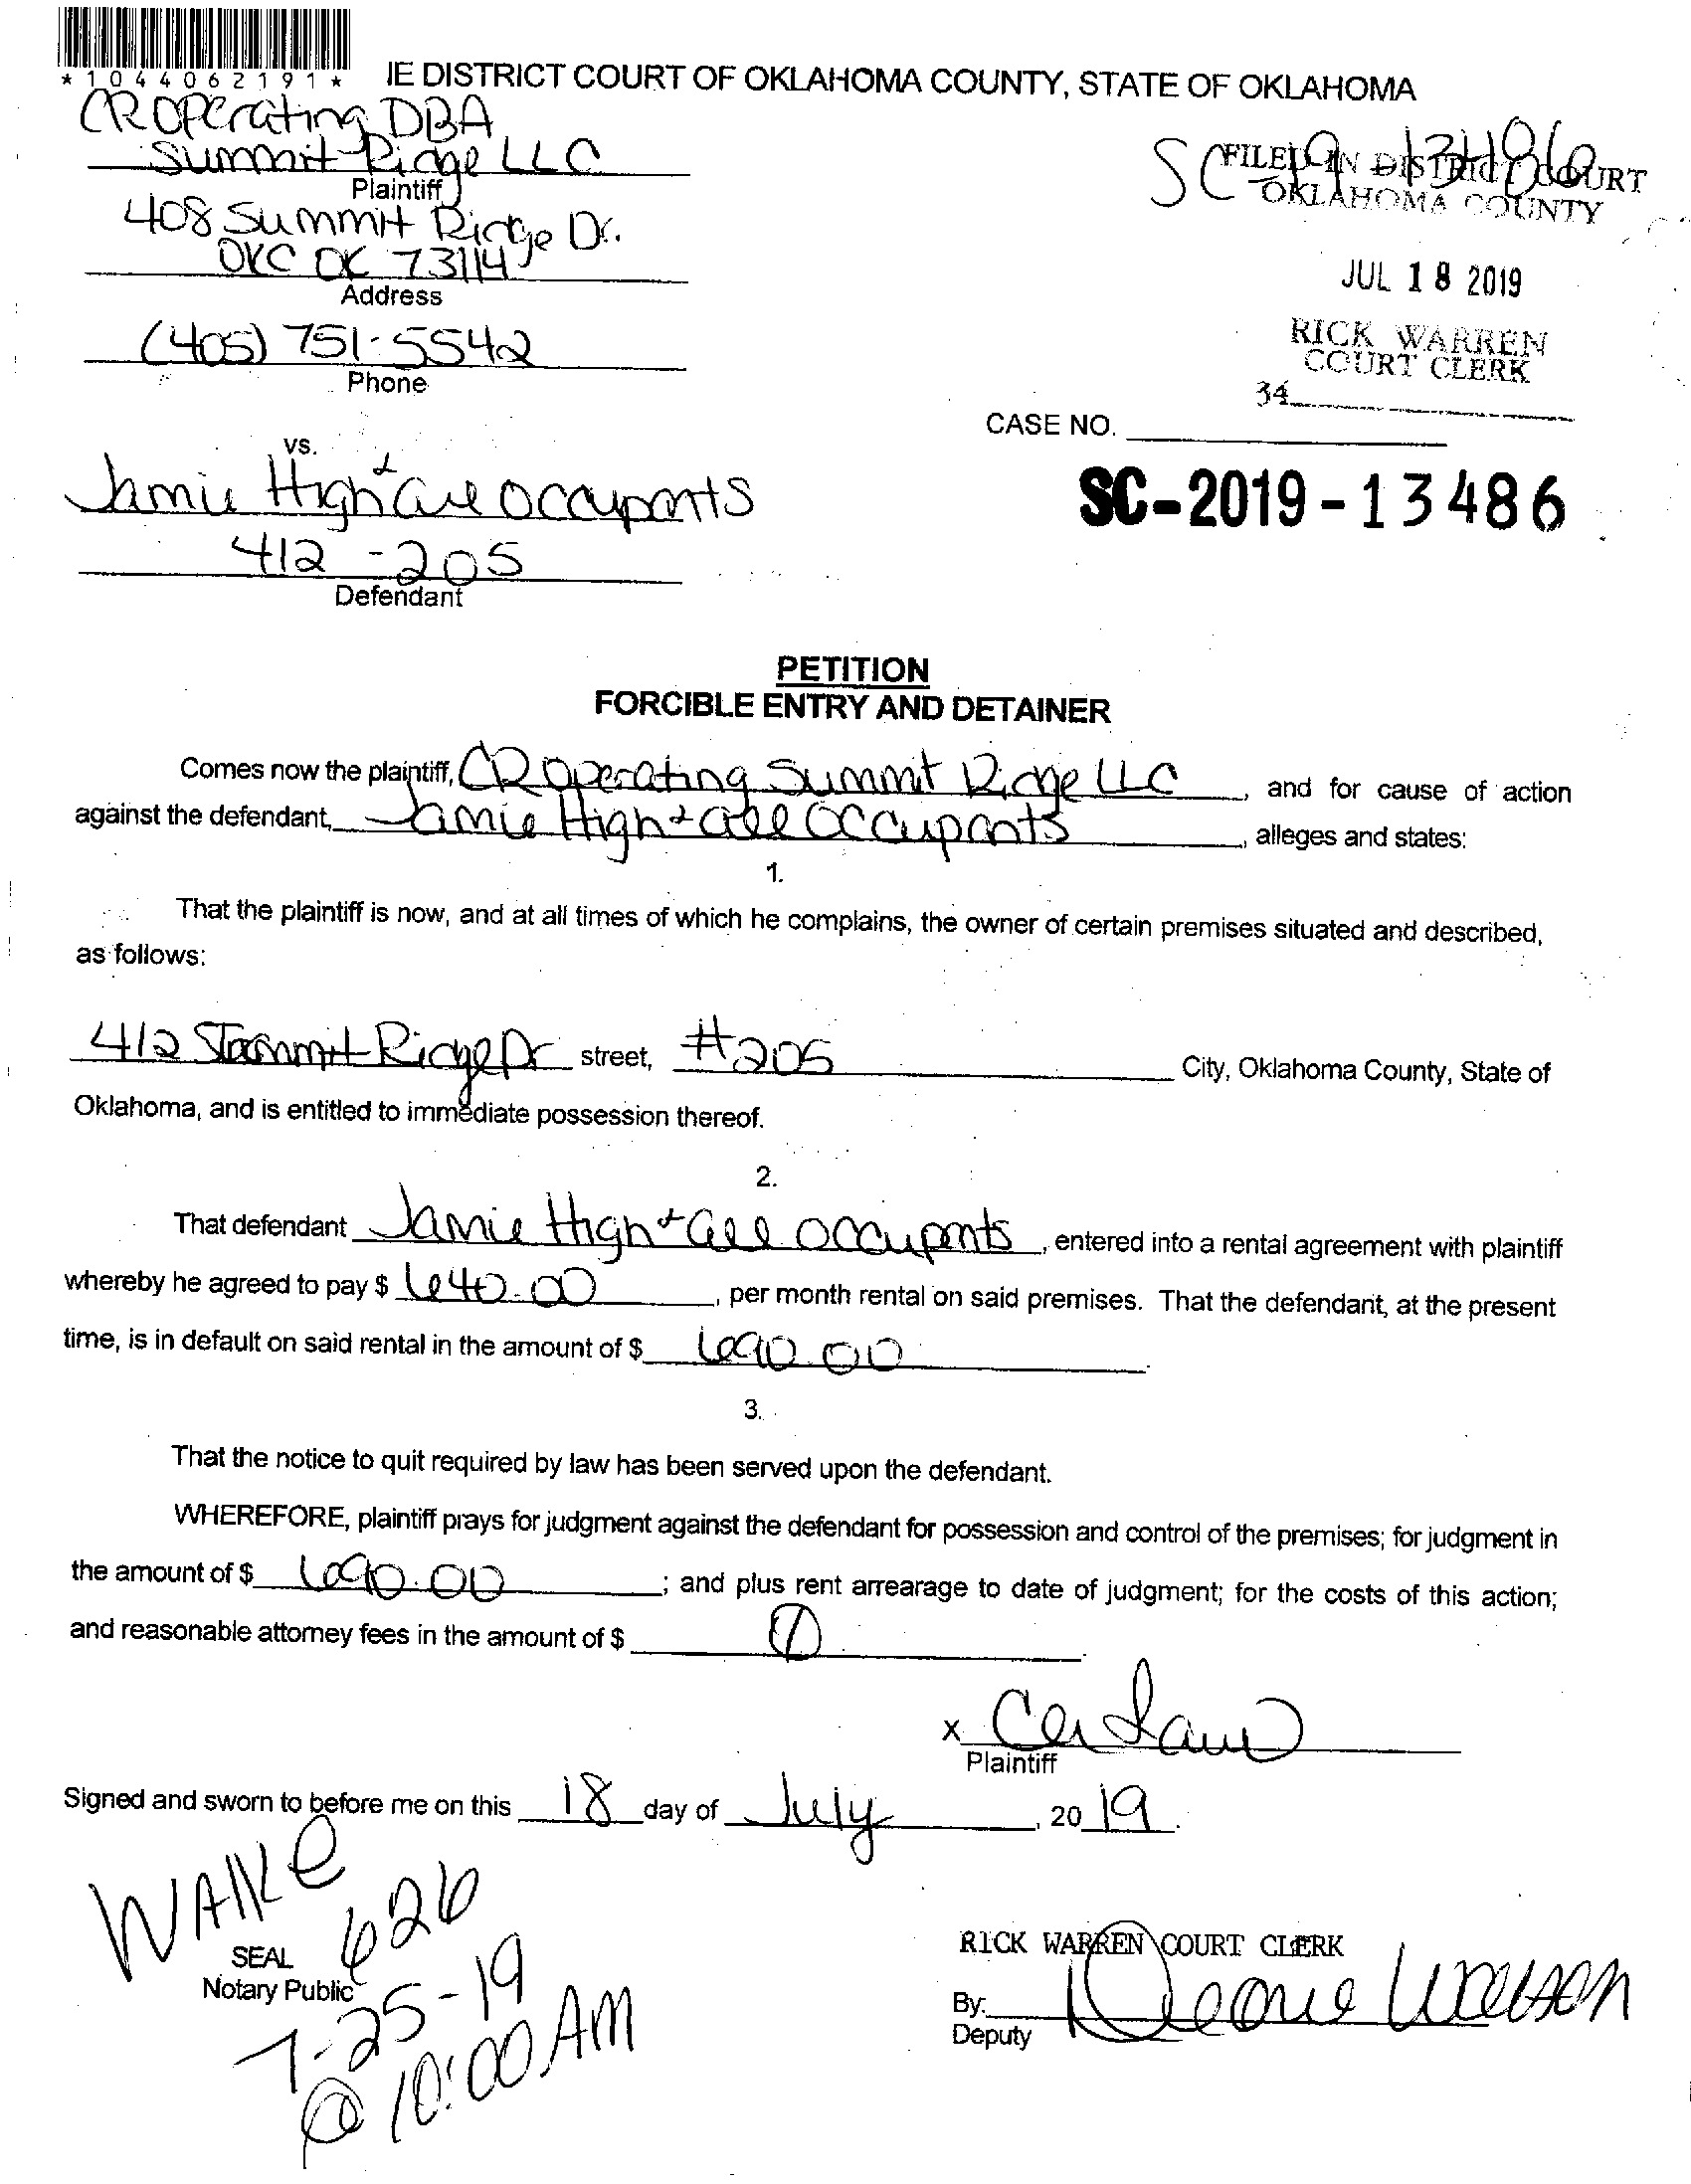 *1044062191*
IE DISTRICT COURT OF OKLAHOMA COUNTY, STATE OF OKLAHOMA
CR Operating DBA
Summit Ridge LLC
Plaintiff
408 Summit Ridge Dr.
OKC OK 73114
Address
(405) 751-5542
Phone
SC-19-13486
FILED IN DISTRICT COURT
OKLAHOMA COUNTY
JUL 18 2019
RICK WARREN
COURT CLERK
34
CASE NO.
SC-2019-13486
vs.
Jamie High + all occupants
412 - 205
Defendant
PETITION
FORCIBLE ENTRY AND DETAINER
Comes now the plaintiff, CR Operating Summit Ridge LLC, and for cause of action
against the defendant, Jamie High + all occupants, alleges and states:
1.
That the plaintiff is now, and at all times of which he complains, the owner of certain premises situated and described,
as follows:
412 Summit Ridge Dr street, #205 City, Oklahoma County, State of
Oklahoma, and is entitled to immediate possession thereof.
2.
That defendant Jamie High + all occupants, entered into a rental agreement with plaintiff
whereby he agreed to pay $ 640.00, per month rental on said premises. That the defendant, at the present
time, is in default on said rental in the amount of $ 690.00.
3.
That the notice to quit required by law has been served upon the defendant.
WHEREFORE, plaintiff prays for judgment against the defendant for possession and control of the premises; for judgment in
the amount of $ 690.00; and plus rent arrearage to date of judgment; for the costs of this action;
and reasonable attorney fees in the amount of $ 0.
x
Plaintiff
Signed and sworn to before me on this 18 day of July, 2019.
WAlKe
626
SEAL
Notary Public
7-25-19
@ 10:00 AM
RICK WARREN COURT CLERK
By:
Deputy